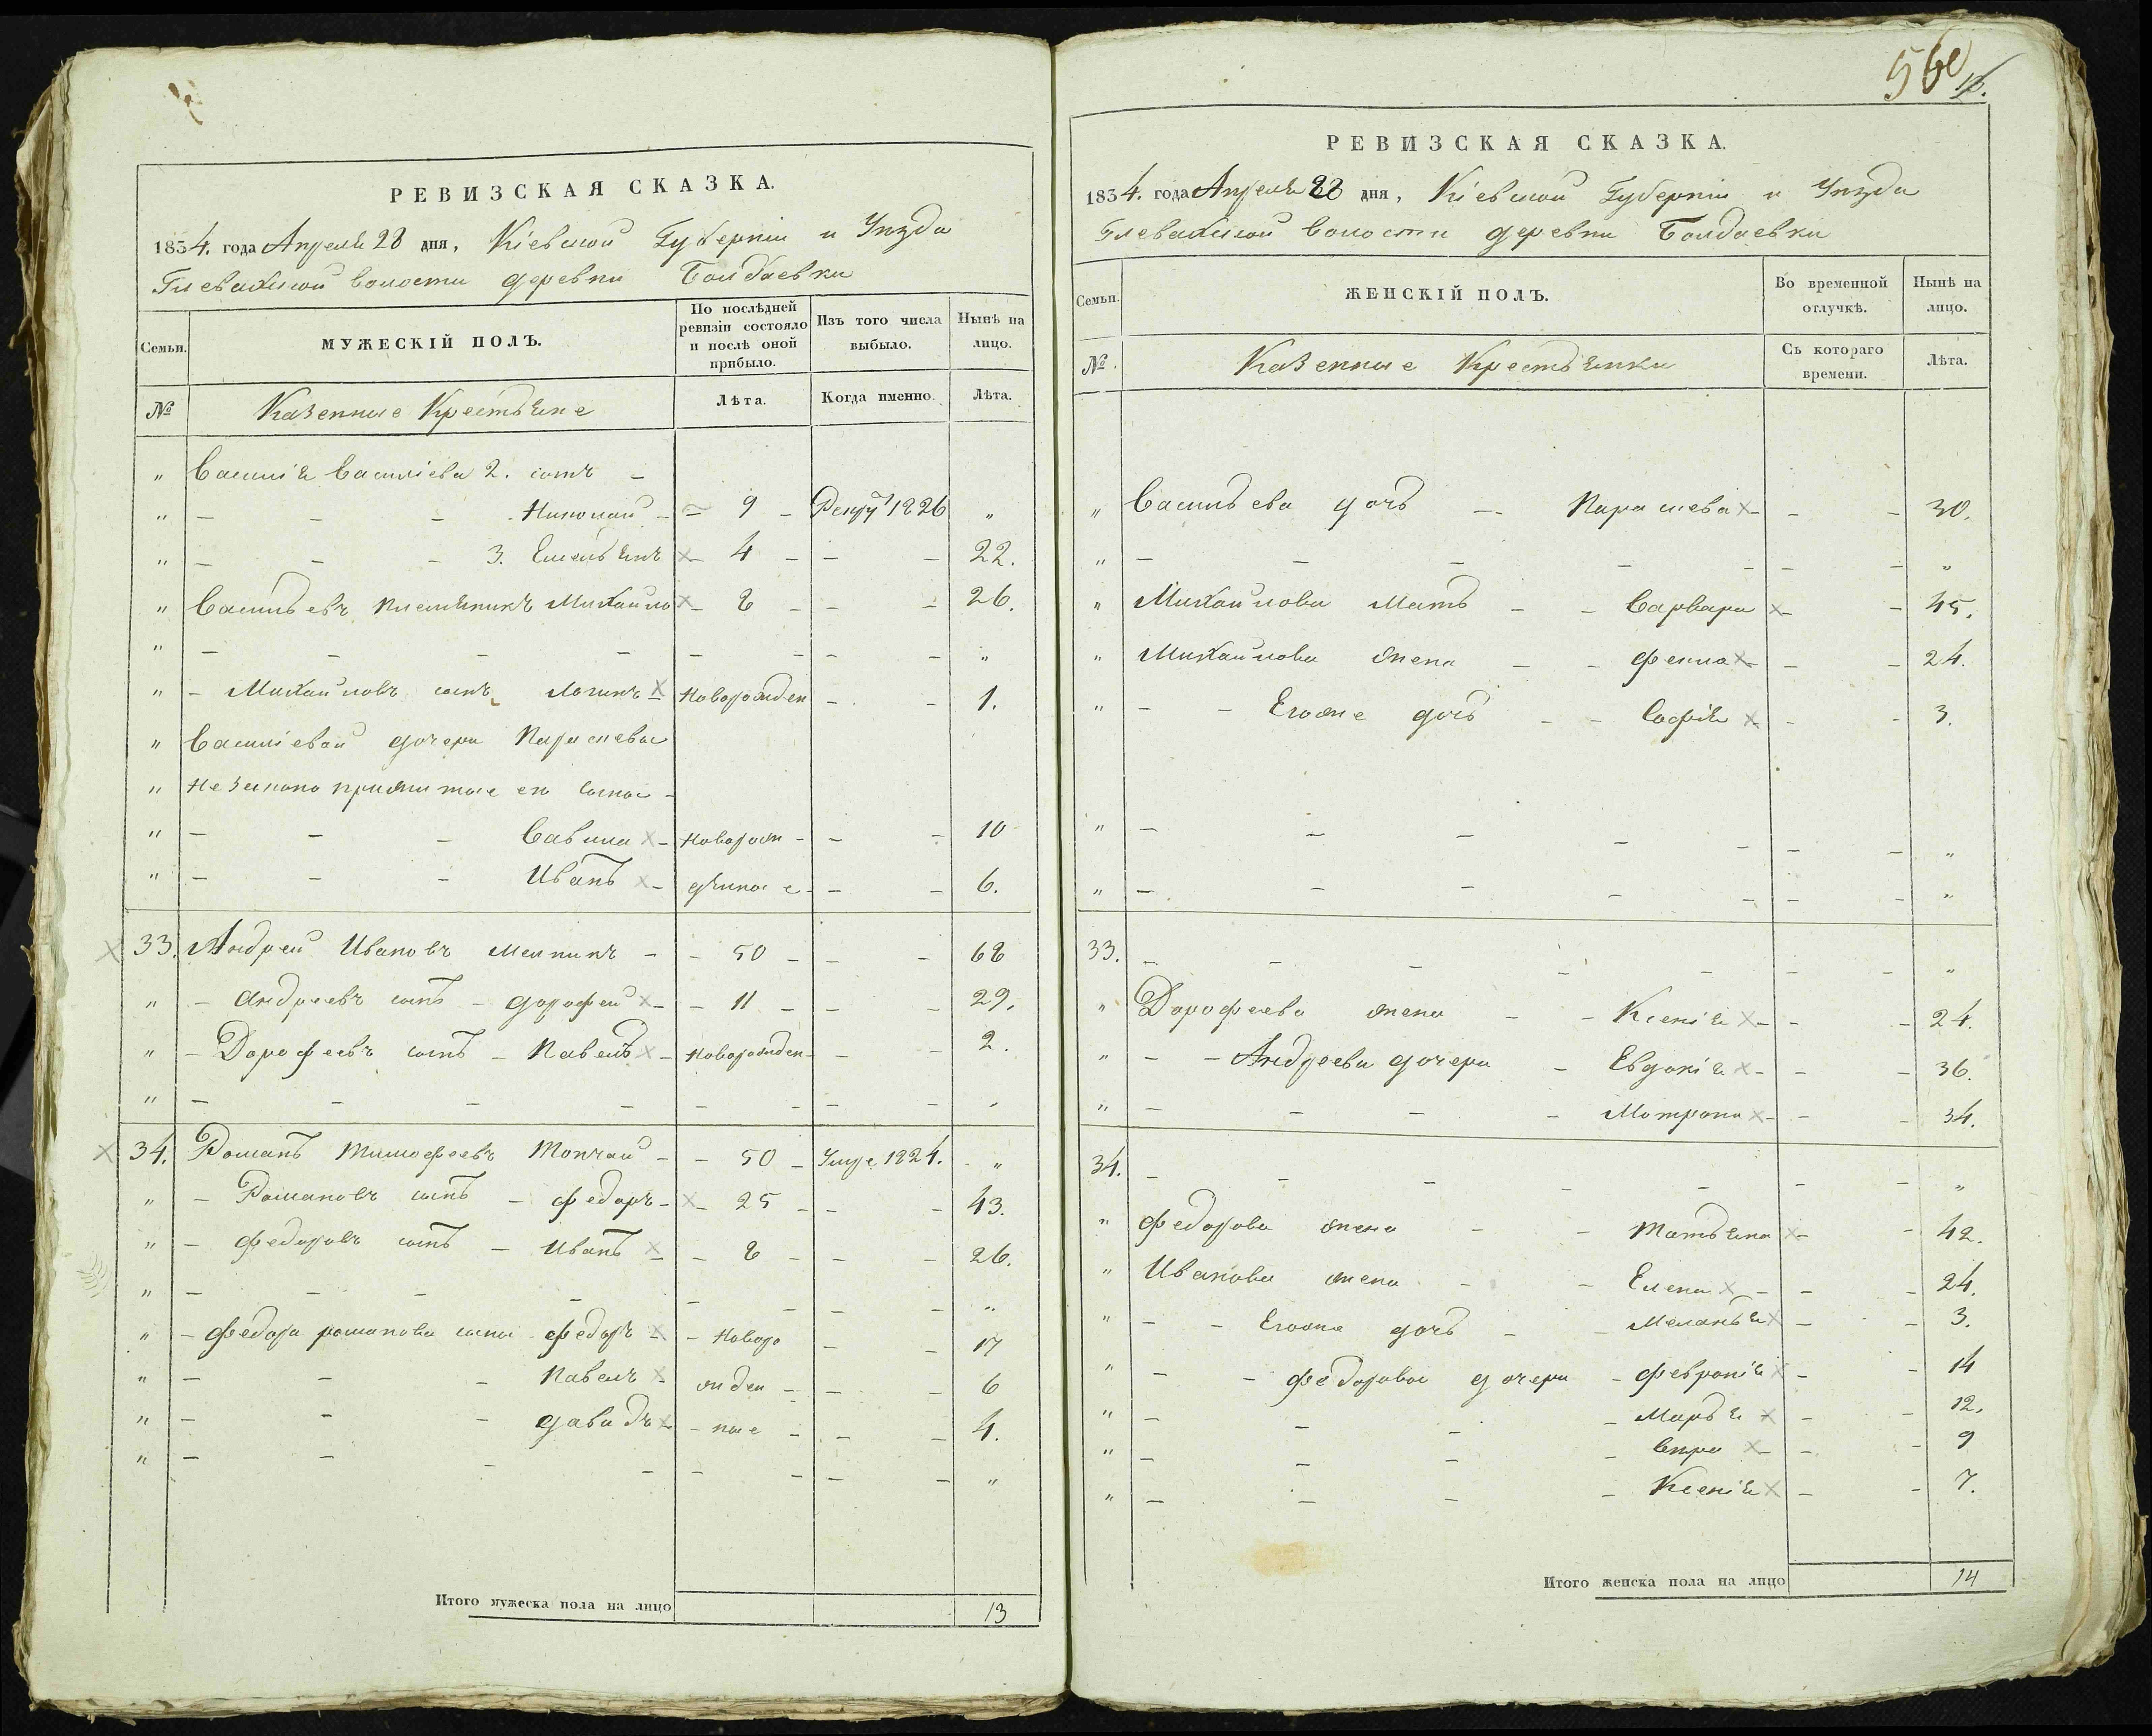 РЕВИЗСКАЯ СКАЗКА.
1834. года Апреля 28 дня, Кіевской Губерніи и Уѣзда
Глевахской Волости деревни Болдаевки
Семьи.
МУЖЕСКІЙ ПОЛЪ.
По послѣдней ревизіи состояло и послѣ оной прибыло.
Изъ того числа выбыло.
Нынѣ на лицо.
№
Казенные Крестьяне
Лѣта.
Когда именно.
Лѣта.
" Василія Васильева 2. сынъ –
" – – – Николай – – 9 – Рекру 1826 "
" – – – 3. Емельянъ × – 4 – – – 22.
" Васильевъ племянникъ Михайло × – 8 – – – 26.
" – – – – – – – – "
" – Михайловъ сынъ Логинъ × – Новорожден – – 1.
" Василіевой дочери Параскевы
" Незаконо прижитые ею сыны –
" – – – Савила × – Новорож – – – 10
" – – – Иванъ × – дѣнные – – – 6.
× 33. Андрей Ивановъ Мельникъ – – 50 – – – 68
" – Андреевъ сынъ – Дорофей × – – 11 – – – 29.
" – Дорофеевъ сынъ – Павелъ × – Новорожден – – – 2.
" – – – – – – – – "
× 34. Романъ Тимофеевъ Топчай – – 50 – Умре 1824. "
" – Романовъ сынъ – Федоръ – × – 25 – – – 43.
" – Федоровъ сынъ – Иванъ × – – 8 – – – 26.
" – – – – – – – – "
" – Федора Романова сыны Федоръ × – Новоро – – 17
" – – – Павелъ × – жден – – – 6
" – – – Давидъ × – ные – – – 4.
" – – – – – – – – "
Итого мужеска пола на лицо 13
560
РЕВИЗСКАЯ СКАЗКА.
1834. года Апреля 28 дня, Кіевской Губерніи и Уѣзда
Глевахской Волости деревни Болдаевки
Семьи.
ЖЕНСКІЙ ПОЛЪ.
Во временной отлучкѣ.
Нынѣ на лицо.
№
Казенные Крестьянки
Съ котораго времени.
Лѣта.
" Васильева дочь – Параскева × – – – 30.
" – – – – – – – "
" Михайлова Мать – – Варвара × – – 45.
" Михайлова жена – – Фекла × – – – 24.
" – – Егоже дочь – – Софія × – – 3.
" – – – – – – – "
" – – – – – – – "
33. – – – – – – – "
" Дорофеева жена – – Ксенія × – – – 24.
" – – Андреева дочери – Евдокія × – – – 36.
" – – – – Мотрона × – – – 34.
34. – – – – – – "
" Федорова жена – – Татьяна × – – 42.
" Иванова жена – – Елена × – – – 24.
" – – Егоже дочь – – Меланья × – – 3.
" – – Федоровы дочери – Февронія × – – 14
" – – – – Марья × – – 12.
" – – – – Вѣра × – – – 9
" – – – – Ксенія × – – 7.
Итого женска пола на лицо 14